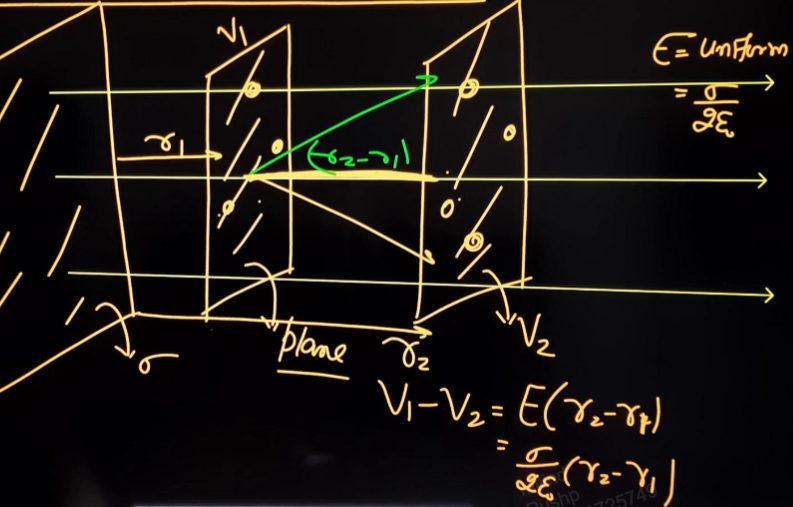 V₁
E = uniform
= σ/2ε₀
r₁
(r₂-r₁)
σ
plane
r₂
V₂
V₁-V₂ = E(r₂-r₁)
= σ/2ε₀ (r₂-r₁)